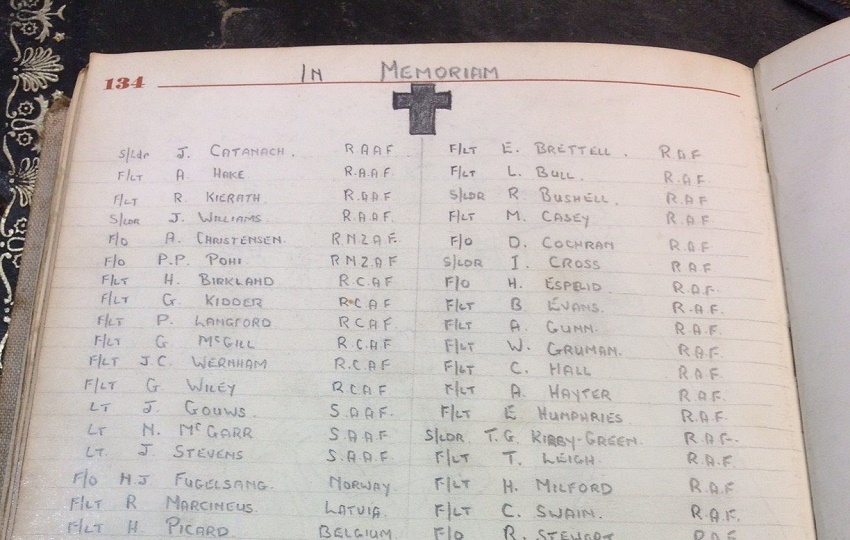 134 IN MEMORIAM
S/Ldr J. CATANACH. RAAF
F/LT A HAKE R.A.A.F
F/LT R KIERATH R.A.A.F
S/LDR J. WILLIAMS R.A.A.F.
F/O A. CHRISTENSEN. R N Z A F.
F/O P.P. POHI R N Z A F
F/LT H. BIRKLAND R.C.A.F
F/LT G. KIDDER R.C A F
F/LT P. LANGFORD R C A F
F/LT G McGILL R.C.A F
F/LT J.C. WERNHAM R.C.A F
F/LT G WILEY R C A F
LT J. GOUWS. S.A A F.
LT N. McGARR S.A A F
LT. J. STEVENS S.A A F.
F/O H.J. FUGELSANG. NORWAY.
F/LT R MARCINEUS. LATVIA
F/LT H. PICARD BELGIUM
F/LT E. BRETTELL. R A F
F/LT L. BULL. R.A F
S/LDR R. BUSHELL. R.A F
F/LT M. CASEY R.A F
F/O D. COCHRAN R.A F
S/LDR I. CROSS R A F
F/O H. ESPELID. R.A.F.
F/LT B EVANS. R.A.F.
F/LT A. GUNN. R.A F.
F/LT W. GRUMAN. R A F.
F/LT C. HALL R A F.
F/LT A. HAYTER R A F.
F/LT E HUMPHRIES R.A F.
S/LDR T.G. KIRBY-GREEN. R A F.
F/LT T. LEIGH. R.A.F.
F/LT H. MILFORD R.A.F
F/LT C. SWAIN. R.A.F.
F/O R. STEWART R A F